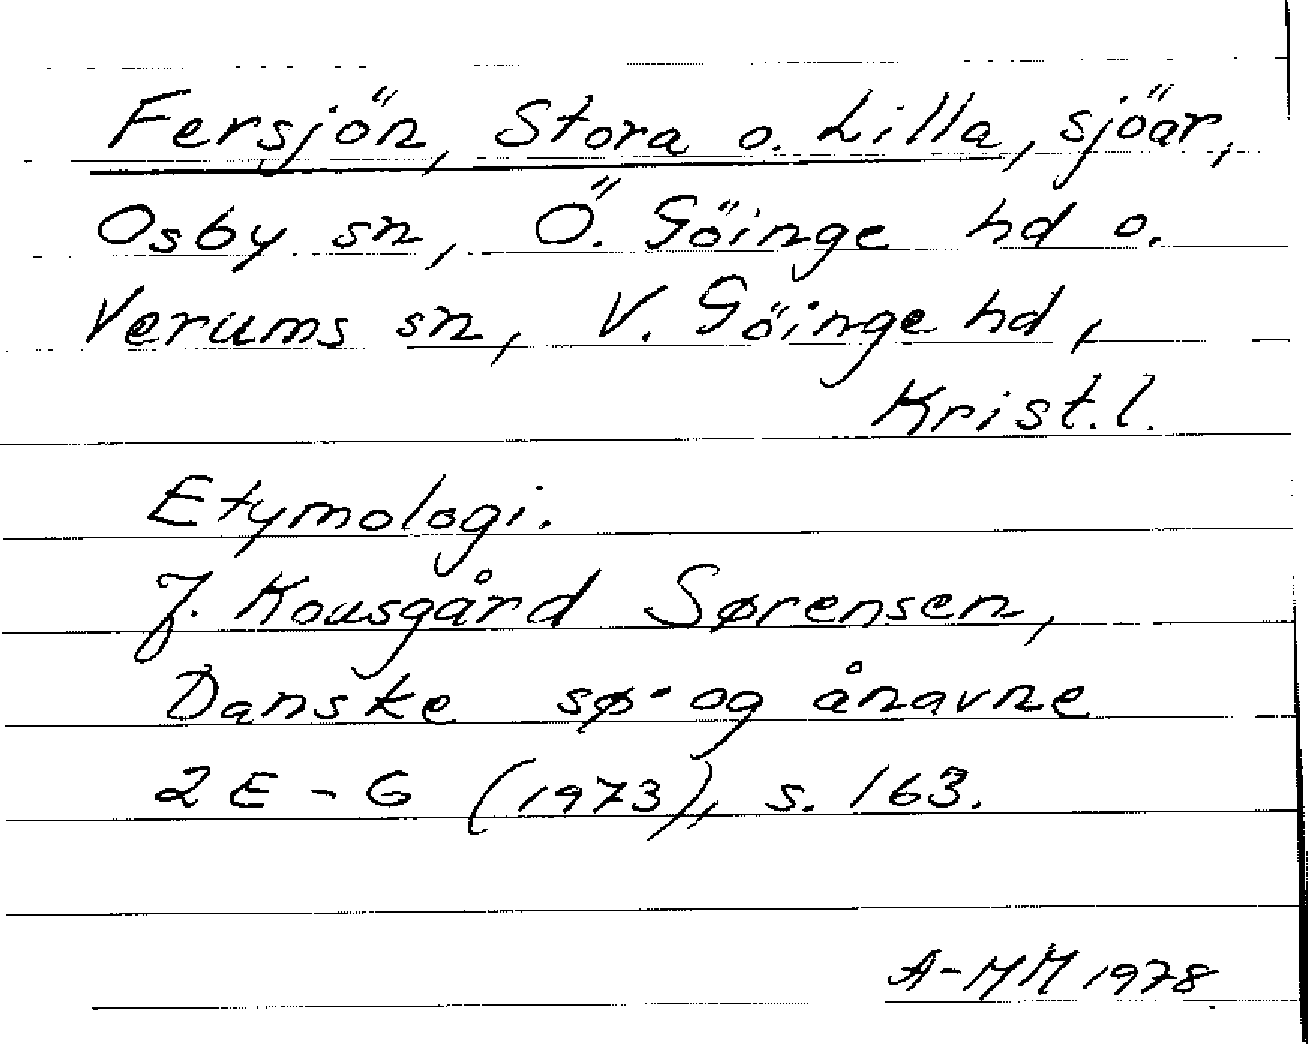 Fersjön, Stora o. Lilla, sjöar,
Osby sn, Ö. Göinge hd o.
Verums sn, V. Göinge hd,
Krist. l.
Etymologi.
J. Kousgård Sørensen,
Danske sø- og ånavne
2 E - G (1973), s. 163.
A-MM 1978